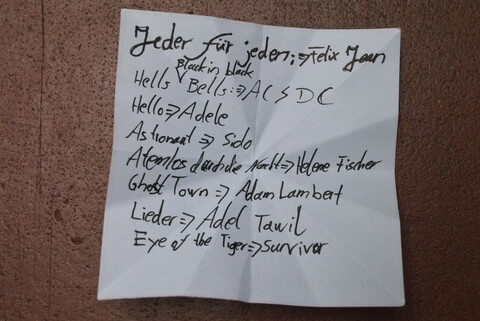 Jeder für jeden:⇒ Felix Jaen
Back in black
Hells Bells:⇒ AC⚡DC
Hello⇒Adele
Astronaut ⇒ Sido
Atemlos durch die Nacht⇒Helene Fischer
Ghost Town ⇒ Adam Lambert
Lieder⇒ Adel Tawil
Eye of the Tiger⇒Survivor